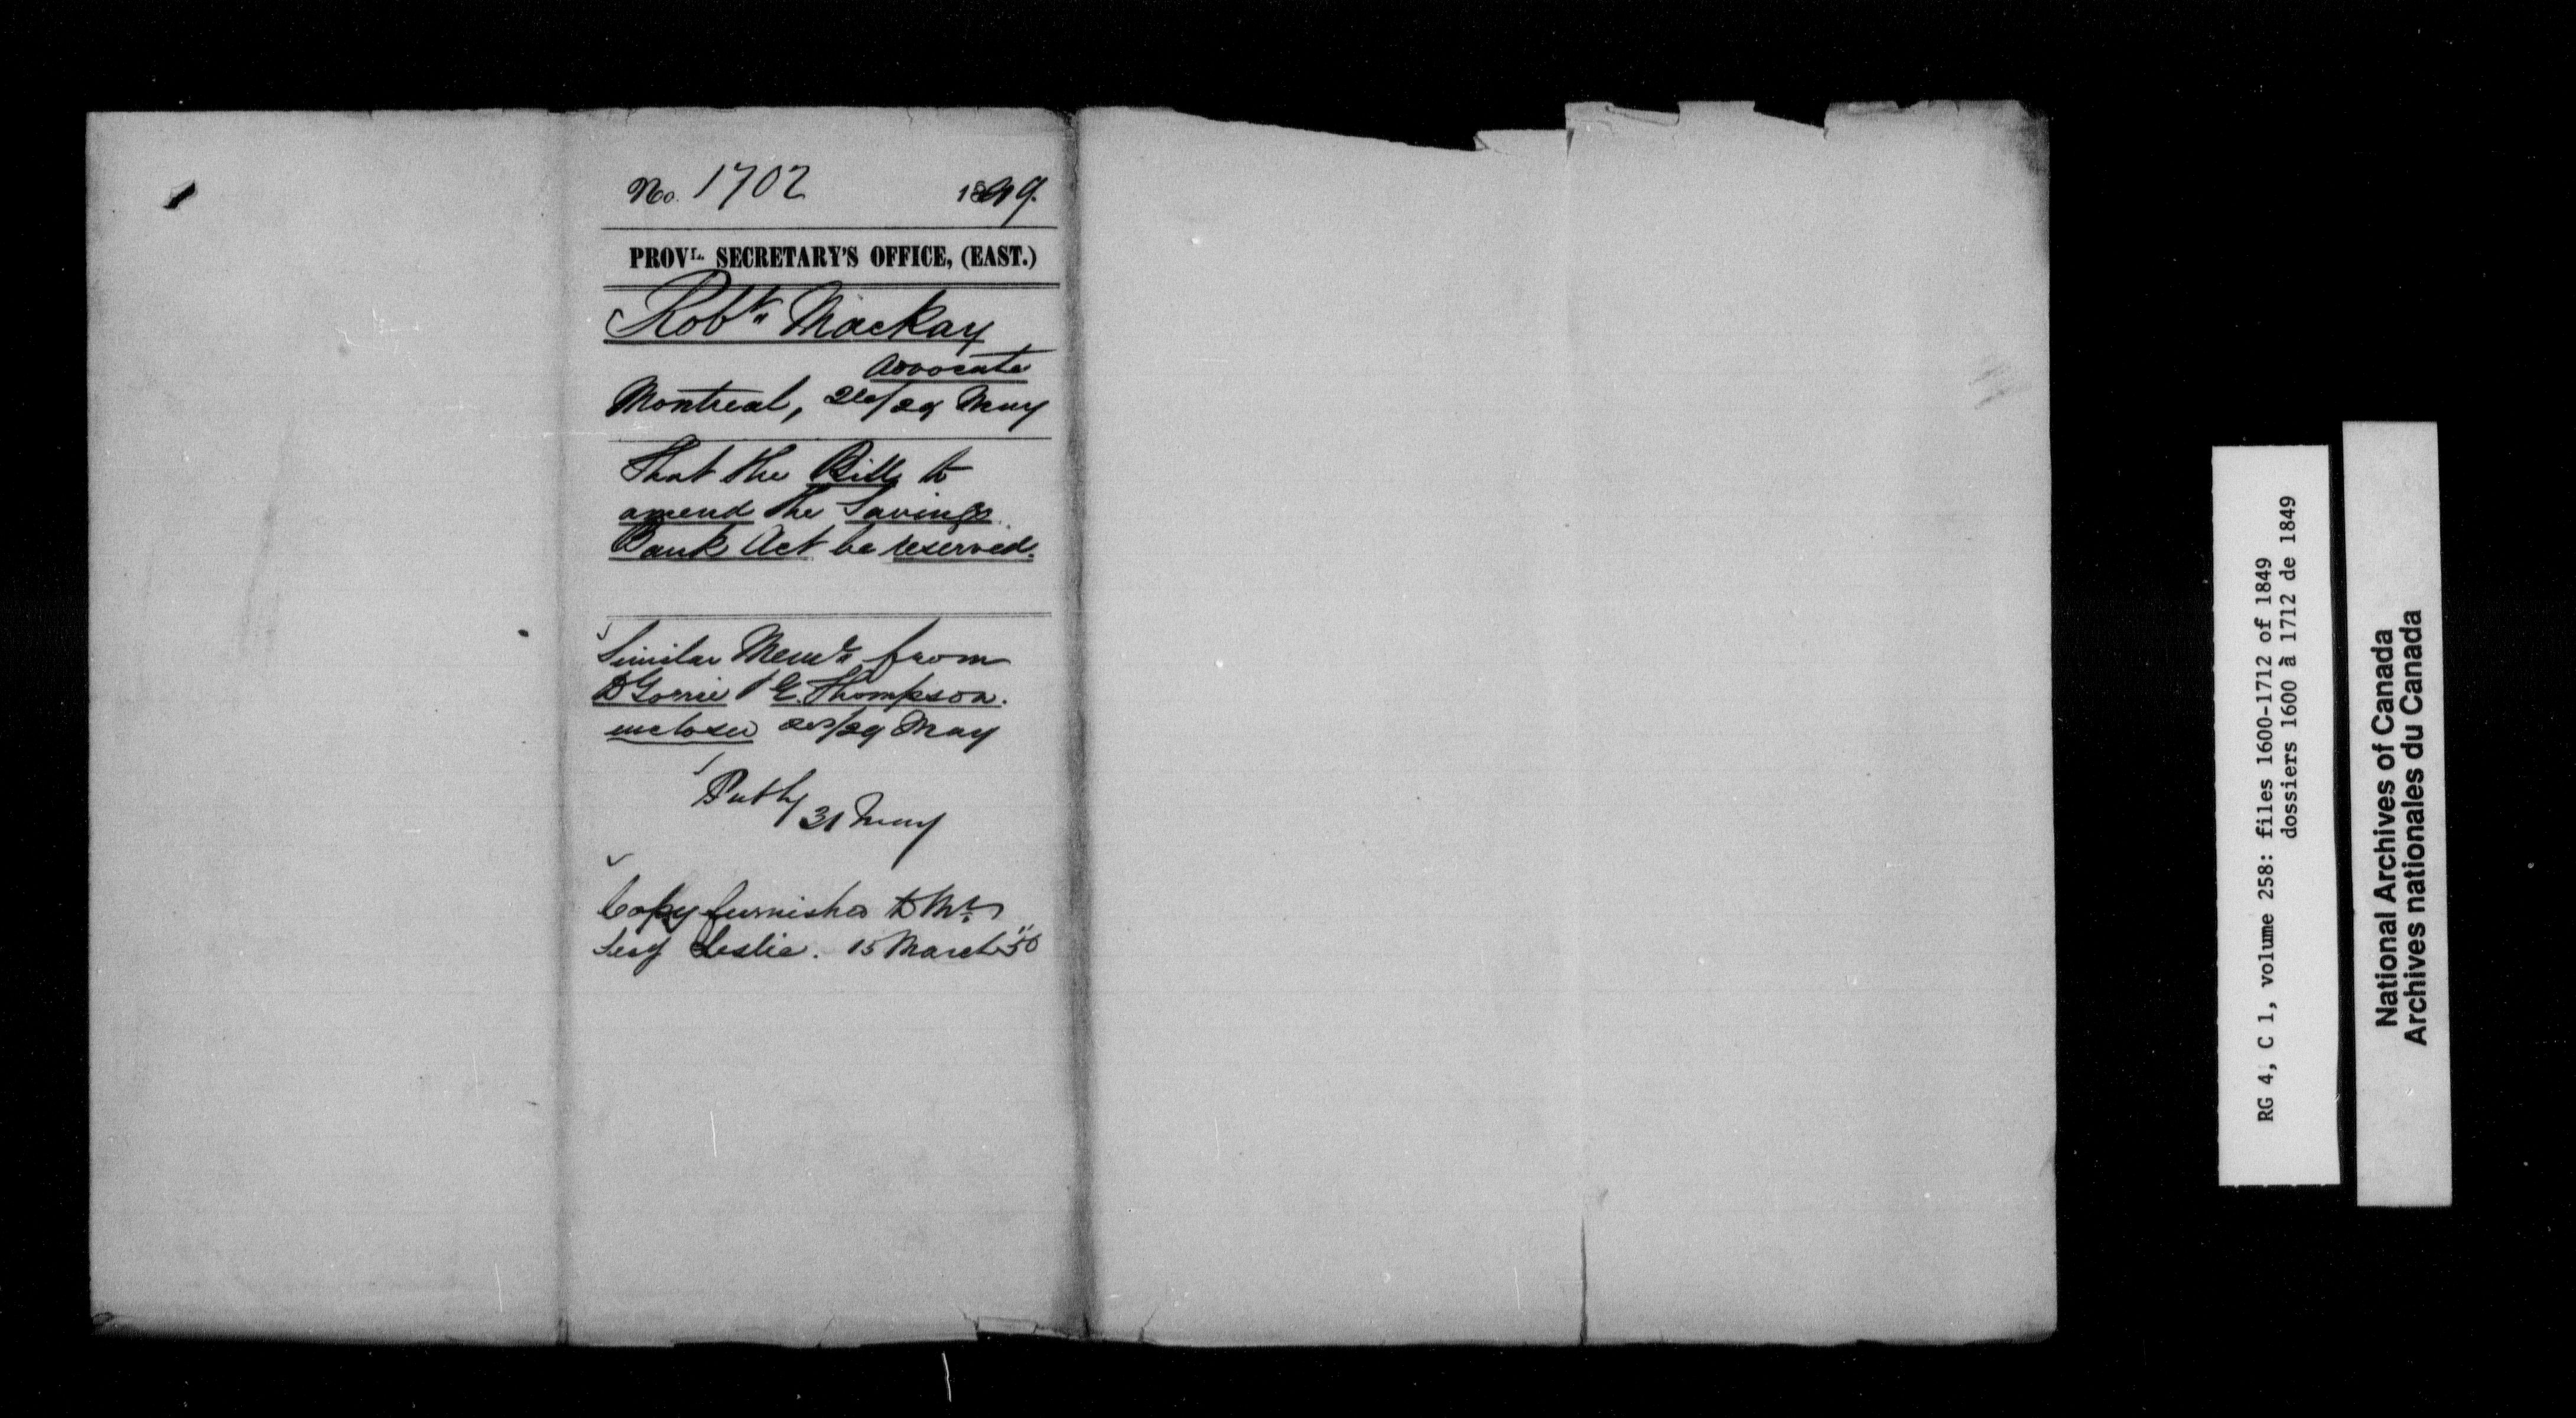 No. 1702 1849.
PROVL. SECRETARY'S OFFICE, (EAST.)
Robt. Mackay
Advocate
Montreal, 26/29 May
That the Bill to
amend the Savings
Bank Act be reserved.
Similar Meml. from
D Gorrie & E. Thompson.
enclosed /29 May
31 May
Copy furnished to Mr.
Secy Leslie. 15 March "50
RG 4, C 1, volume 258: files 1600-1712 of 1849
dossiers 1600 à 1712 de 1849
National Archives of Canada
Archives nationales du Canada